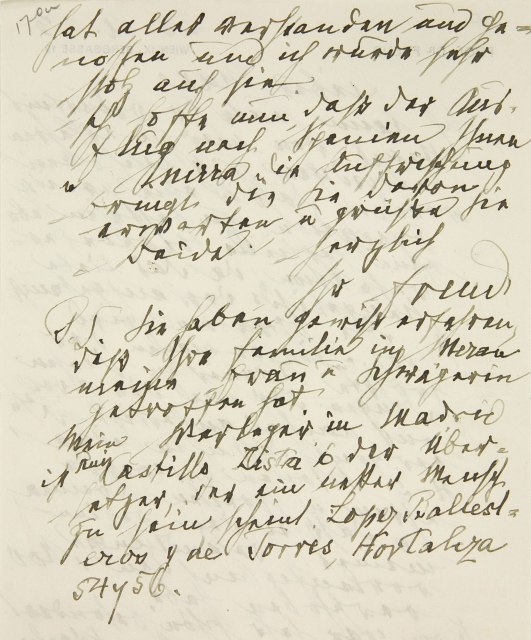 hat alles verstanden und ge-
nossen und ich wurde sehr
stolz auf sie.
Ich hoffe nun, daß der Aus-
flug nach Spanien Ihnen
u Mirra die Auffrischung
bringt die Sie davon
erwarten u grüße Sie
Beide herzlich
Ihr Freud
P. S. Sie haben gewiß erfahren,
daß Ihre Familie in Meran
meine Frau u Schwägerin
getroffen hat.
Mein Verleger in Madrid
ist Ruiz Castillo Lista 6 der Über-
setzer, der ein netter Mensch
zu sein scheint, Lopez Ballest-
eros y de Torres Hortaleza
54 y 56.